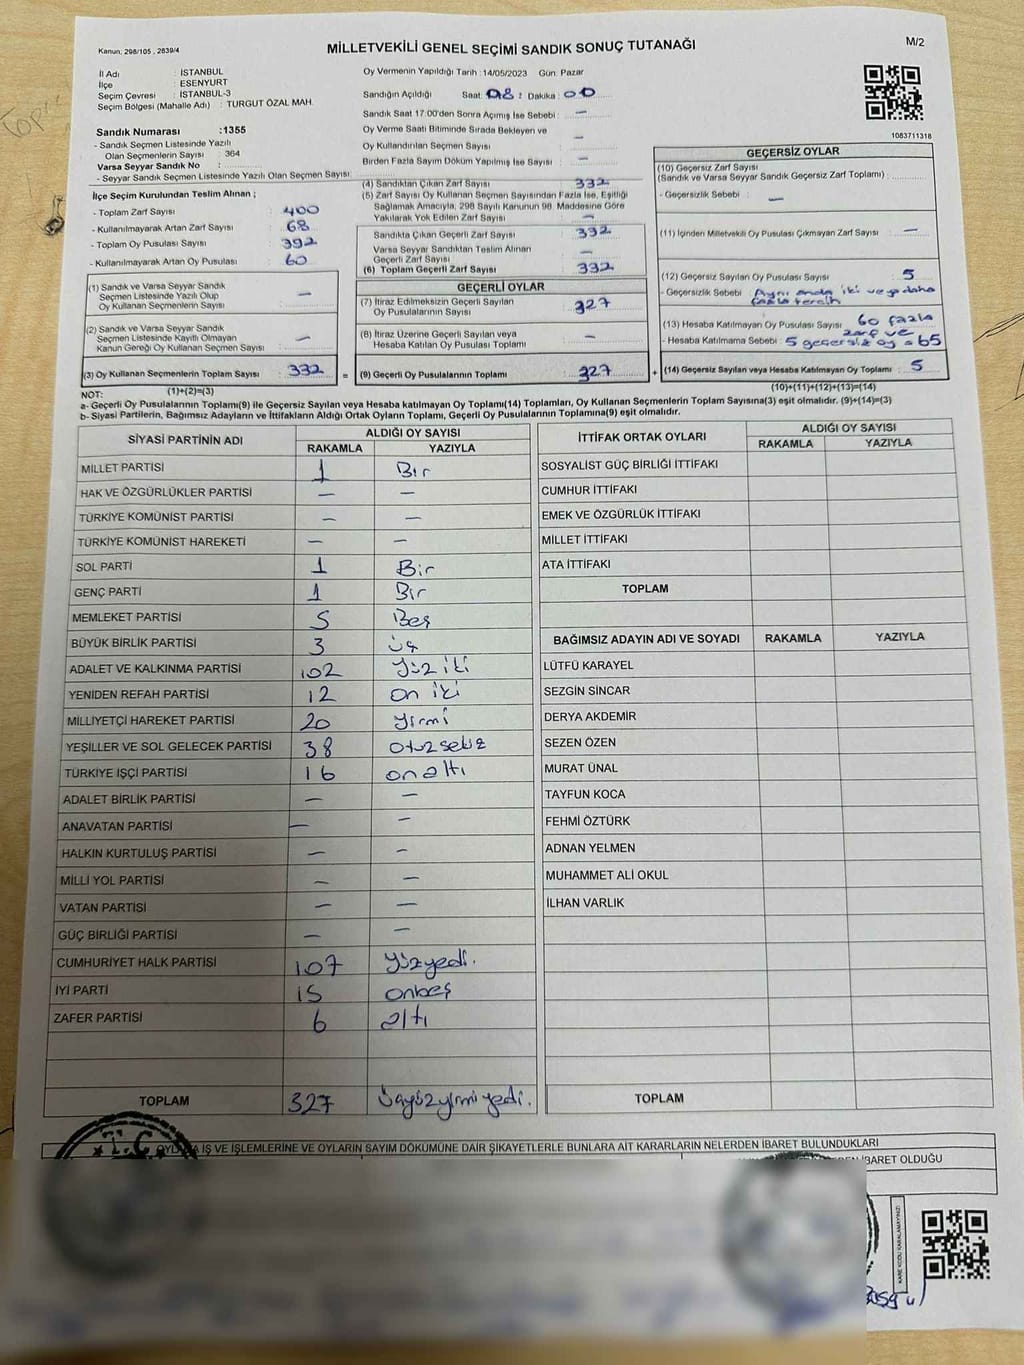 Kanun; 298/105 , 2839/4
MİLLETVEKİLİ GENEL SEÇİMİ SANDIK SONUÇ TUTANAĞI
M/2
İl Adı : İSTANBUL
İlçe : ESENYURT
Seçim Çevresi : İSTANBUL-3
Seçim Bölgesi (Mahalle Adı) : TURGUT ÖZAL MAH.
Oy Vermenin Yapıldığı Tarih : 14/05/2023 Gün: Pazar
Sandığın Açıldığı Saat: 08 : Dakika : 00
Sandık Saat 17:00'den Sonra Açımış İse Sebebi : —
Oy Verme Saati Bitiminde Sırada Bekleyen ve
Oy Kullandırılan Seçmen Sayısı : —
Birden Fazla Sayım Döküm Yapılmış İse Sayısı : —
1083711318
Sandık Numarası :1355
- Sandık Seçmen Listesinde Yazılı
Olan Seçmenlerin Sayısı : 364
Varsa Seyyar Sandık No :
- Seyyar Sandık Seçmen Listesinde Yazılı Olan Seçmen Sayısı :
İlçe Seçim Kurulundan Teslim Alınan ;
- Toplam Zarf Sayısı : 400
- Kullanılmayarak Artan Zarf Sayısı : 68
- Toplam Oy Pusulası Sayısı : 392
- Kullanılmayarak Artan Oy Pusulası : 60
(1) Sandık ve Varsa Seyyar Sandık
Seçmen Listesinde Yazılı Olup
Oy Kullanan Seçmenlerin Sayısı : —
(2) Sandık ve Varsa Seyyar Sandık
Seçmen Listesinde Kayıtlı Olmayan
Kanun Gereği Oy Kullanan Seçmen Sayısı : —
(3) Oy Kullanan Seçmenlerin Toplam Sayısı : 332 =
(1)+(2)=(3)
(4) Sandıktan Çıkan Zarf Sayısı : 332
(5) Zarf Sayısı Oy Kullanan Seçmen Sayısından Fazla İse, Eşitliği
Sağlamak Amacıyla, 298 Sayılı Kanunun 98. Maddesine Göre
Yakılarak Yok Edilen Zarf Sayısı : —
Sandıkta Çıkan Geçerli Zarf Sayısı : 332
Varsa Seyyar Sandıktan Teslim Alınan
Geçerli Zarf Sayısı :
(6) Toplam Geçerli Zarf Sayısı : 332
GEÇERLİ OYLAR
(7) İtiraz Edilmeksizin Geçerli Sayılan
Oy Pusulalarının Sayısı : 327
(8) İtiraz Üzerine Geçerli Sayılan veya
Hesaba Katılan Oy Pusulası Toplamı : —
(9) Geçerli Oy Pusulalarının Toplamı : 327 +
GEÇERSİZ OYLAR
(10) Geçersiz Zarf Sayısı
(Sandık ve Varsa Seyyar Sandık Geçersiz Zarf Toplamı) :
- Geçersizlik Sebebi : —
(11) İçinden Milletvekili Oy Pusulası Çıkmayan Zarf Sayısı : —
(12) Geçersiz Sayılan Oy Pusulası Sayısı : 5
- Geçersizlik Sebebi : Aynı anda iki veya daha
fazla tercih
(13) Hesaba Katılmayan Oy Pusulası Sayısı : 60 fazla
zarf ve
- Hesaba Katılmama Sebebi : 5 geçersiz oy = 65
(14) Geçersiz Sayılan veya Hesaba Katılmayan Oy Toplamı : 5
(10)+(11)+(12)+(13)=(14)
NOT:
a- Geçerli Oy Pusulalarının Toplamı(9) ile Geçersiz Sayılan veya Hesaba katılmayan Oy Toplamı(14) Toplamları, Oy Kullanan Seçmenlerin Toplam Sayısına(3) eşit olmalıdır. (9)+(14)=(3)
b- Siyasi Partilerin, Bağımsız Adayların ve İttifakların Aldığı Ortak Oyların Toplamı, Geçerli Oy Pusulalarının Toplamına(9) eşit olmalıdır.
SİYASİ PARTİNİN ADI ALDIĞI OY SAYISI
RAKAMLA YAZIYLA
MİLLET PARTİSİ 1 Bir
HAK VE ÖZGÜRLÜKLER PARTİSİ — —
TÜRKİYE KOMÜNİST PARTİSİ — —
TÜRKİYE KOMÜNİST HAREKETİ — —
SOL PARTİ 1 Bir
GENÇ PARTİ 1 Bir
MEMLEKET PARTİSİ 5 Beş
BÜYÜK BİRLİK PARTİSİ 3 üç
ADALET VE KALKINMA PARTİSİ 102 yüz iki
YENİDEN REFAH PARTİSİ 12 on iki
MİLLİYETÇİ HAREKET PARTİSİ 20 yirmi
YEŞİLLER VE SOL GELECEK PARTİSİ 38 otuz sekiz
TÜRKİYE İŞÇİ PARTİSİ 16 on altı
ADALET BİRLİK PARTİSİ — —
ANAVATAN PARTİSİ — —
HALKIN KURTULUŞ PARTİSİ — —
MİLLİ YOL PARTİSİ — —
VATAN PARTİSİ — —
GÜÇ BİRLİĞİ PARTİSİ — —
CUMHURİYET HALK PARTİSİ 107 yüzyedi.
İYİ PARTİ 15 onbeş
ZAFER PARTİSİ 6 altı
TOPLAM 327 üçyüzyirmi yedi.
İTTİFAK ORTAK OYLARI ALDIĞI OY SAYISI
RAKAMLA YAZIYLA
SOSYALİST GÜÇ BİRLİĞİ İTTİFAKI
CUMHUR İTTİFAKI
EMEK VE ÖZGÜRLÜK İTTİFAKI
MİLLET İTTİFAKI
ATA İTTİFAKI
TOPLAM
BAĞIMSIZ ADAYIN ADI VE SOYADI RAKAMLA YAZIYLA
LÜTFÜ KARAYEL
SEZGİN SİNCAR
DERYA AKDEMİR
SEZEN ÖZEN
MURAT ÜNAL
TAYFUN KOCA
FEHMİ ÖZTÜRK
ADNAN YELMEN
MUHAMMET ALİ OKUL
İLHAN VARLIK
TOPLAM
T.C.
İŞ VE İŞLEMLERİNE VE OYLARIN SAYIM DÖKÜMÜNE DAİR ŞİKAYETLERLE BUNLARA AİT KARARLARIN NELERDEN İBARET BULUNDUKLARI
İBARET OLDUĞU
KARE KODU KARALAMAYINIZ!